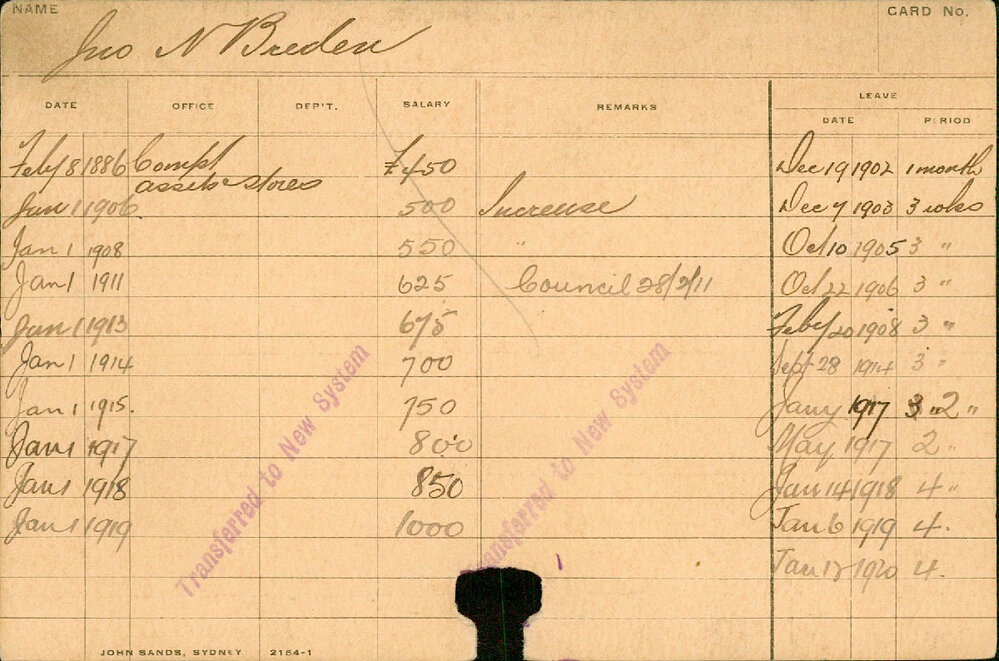 NAME
CARD No.
Jno N Breden
DATE OFFICE DEP'T. SALARY REMARKS LEAVE
DATE PERIOD
Feby 8 1886 Compt £450 Dec 19 1902 1 month
assets & stores
Jan 1 1906 500 Increase Dec 7 1903 3 wks
Jan 1 1908 550 " Oct 10 1905 3 "
Jan 1 1911 625 Council 28/2/11 Oct 22 1906 3 "
Jan 1 1913 675 Feby 20 1908 3 "
Jan 1 1914 700 Sept 28 1914 3 "
Jan 1 1915. 750 Jany 1917 3 " 2 "
Jan 1 1917 800 May 1917 2 "
Jan 1 1918 850 Jan 14 1918 4 "
Jan 1 1919 1000 Jan 6 1919 4.
Jan 1920 4.
Transferred to New System
Transferred to New System
JOHN SANDS, SYDNEY 2154-1